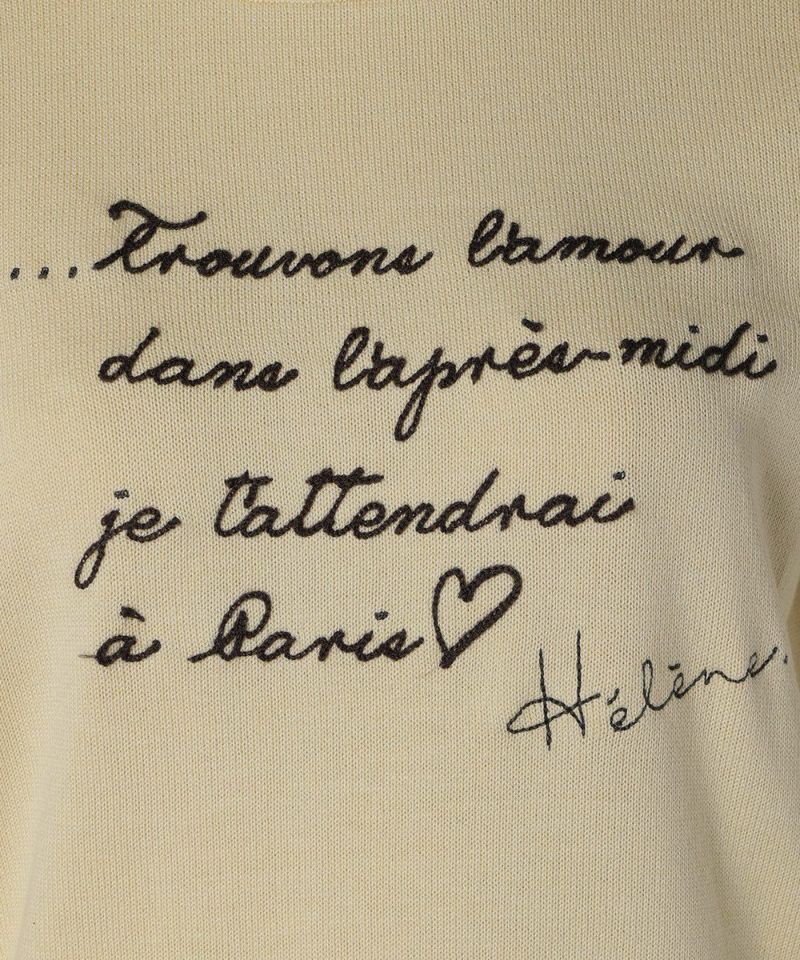 ...Trouvons l'amour
dans l'après-midi
je t'attendrai
à Paris♡
Hélène.